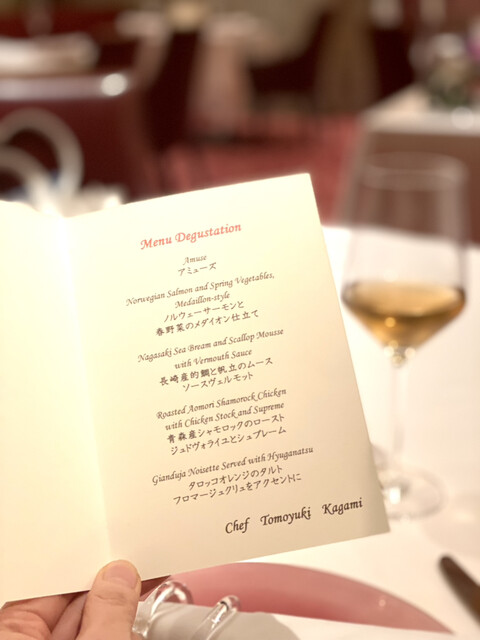 Menu Degustation
Amuse
アミューズ
Norwegian Salmon and Spring Vegetables,
Medaillon-style
ノルウェーサーモンと
春野菜のメダイオン仕立て
Nagasaki Sea Bream and Scallop Mousse
with Vermouth Sauce
長崎産的鯛と帆立のムース
ソースヴェルモット
Roasted Aomori Shamorock Chicken
with Chicken Stock and Supreme
青森産シャモロックのロースト
ジュドヴォライユとシュプレーム
Gianduja Noisette Served with Hyuganatsu
タロッコオレンジのタルト
フロマージュクリュをアクセントに
Chef Tomoyuki Kagami